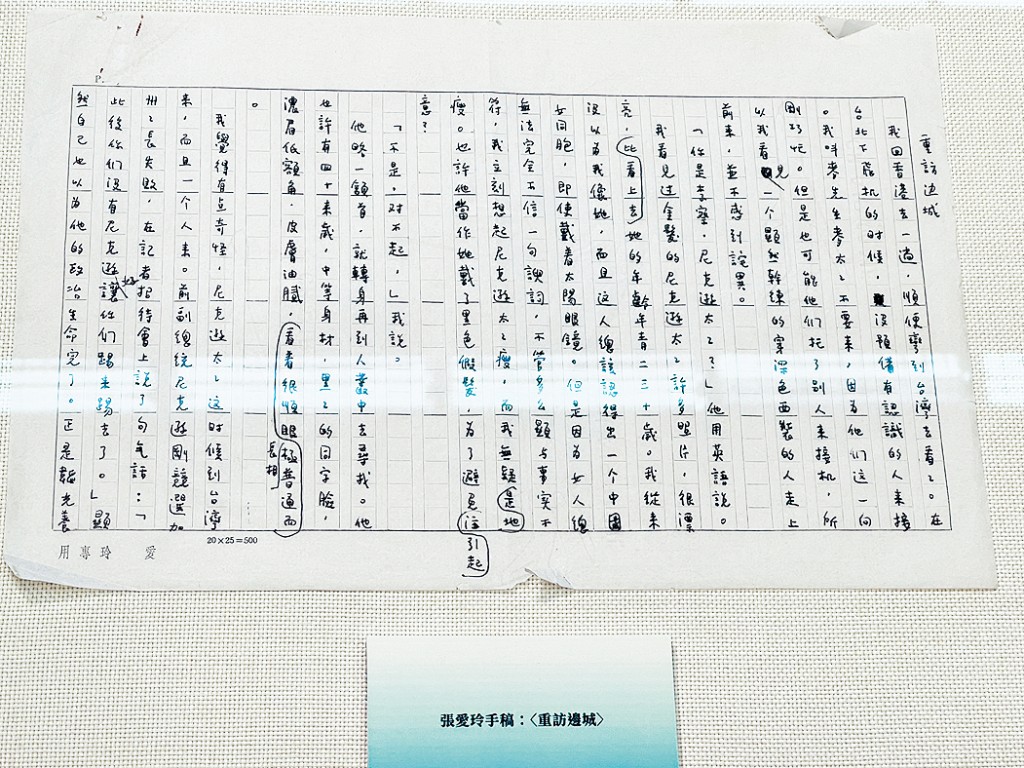 重訪边城
我回香港去一趟，順便弯到台湾去看看。在
台北下飛机的时候，没預備有認識的人來接
。我叫麥先生麥太太不要來，因为他们这一向
剛巧忙。但是也可能他们托了别人来接机，所
以我看見一个顯然幹練的穿深色西裝的人走上
前來，並不感到詫異。
「你是李察．尼克遜太太？」他用英語說。
我看見过金髮的尼克遜太太許多照片，很漂
亮，比看上去她的年齡年青二三十歲。我從来
没以为我像她，而且这人總該認得出一个中國
女同胞，即使戴着太陽眼鏡。但是因为女人總
無法完全不信一句諛詞，不管多么顯与事实不
符，我立刻想起尼克遜太太瘦，而我無疑是地
瘦。也許他當作她戴了黑色假髮，为了避免注引起
意？
「不是，对不起，」我說。
他略一頷首，就轉身再到人叢中去尋找。他
也許有四十来歲，中等身材，黑黑的同字臉，
濃眉低額角，皮膚油膩，看着很順眼極普通而長相
。
我覺得有点奇怪，尼克遜太太这时候到台湾
来，而且一个人来。前副總統尼克遜剛競選加
州州長失敗，在記者招待會上說了句气話：「
此後你们没有尼克遜好讓你们踢来踢去了。」顯
然自己也以为他的政治生命完了。正是韜光養
20×25=500
愛玲專用
張愛玲手稿：〈重訪邊城〉